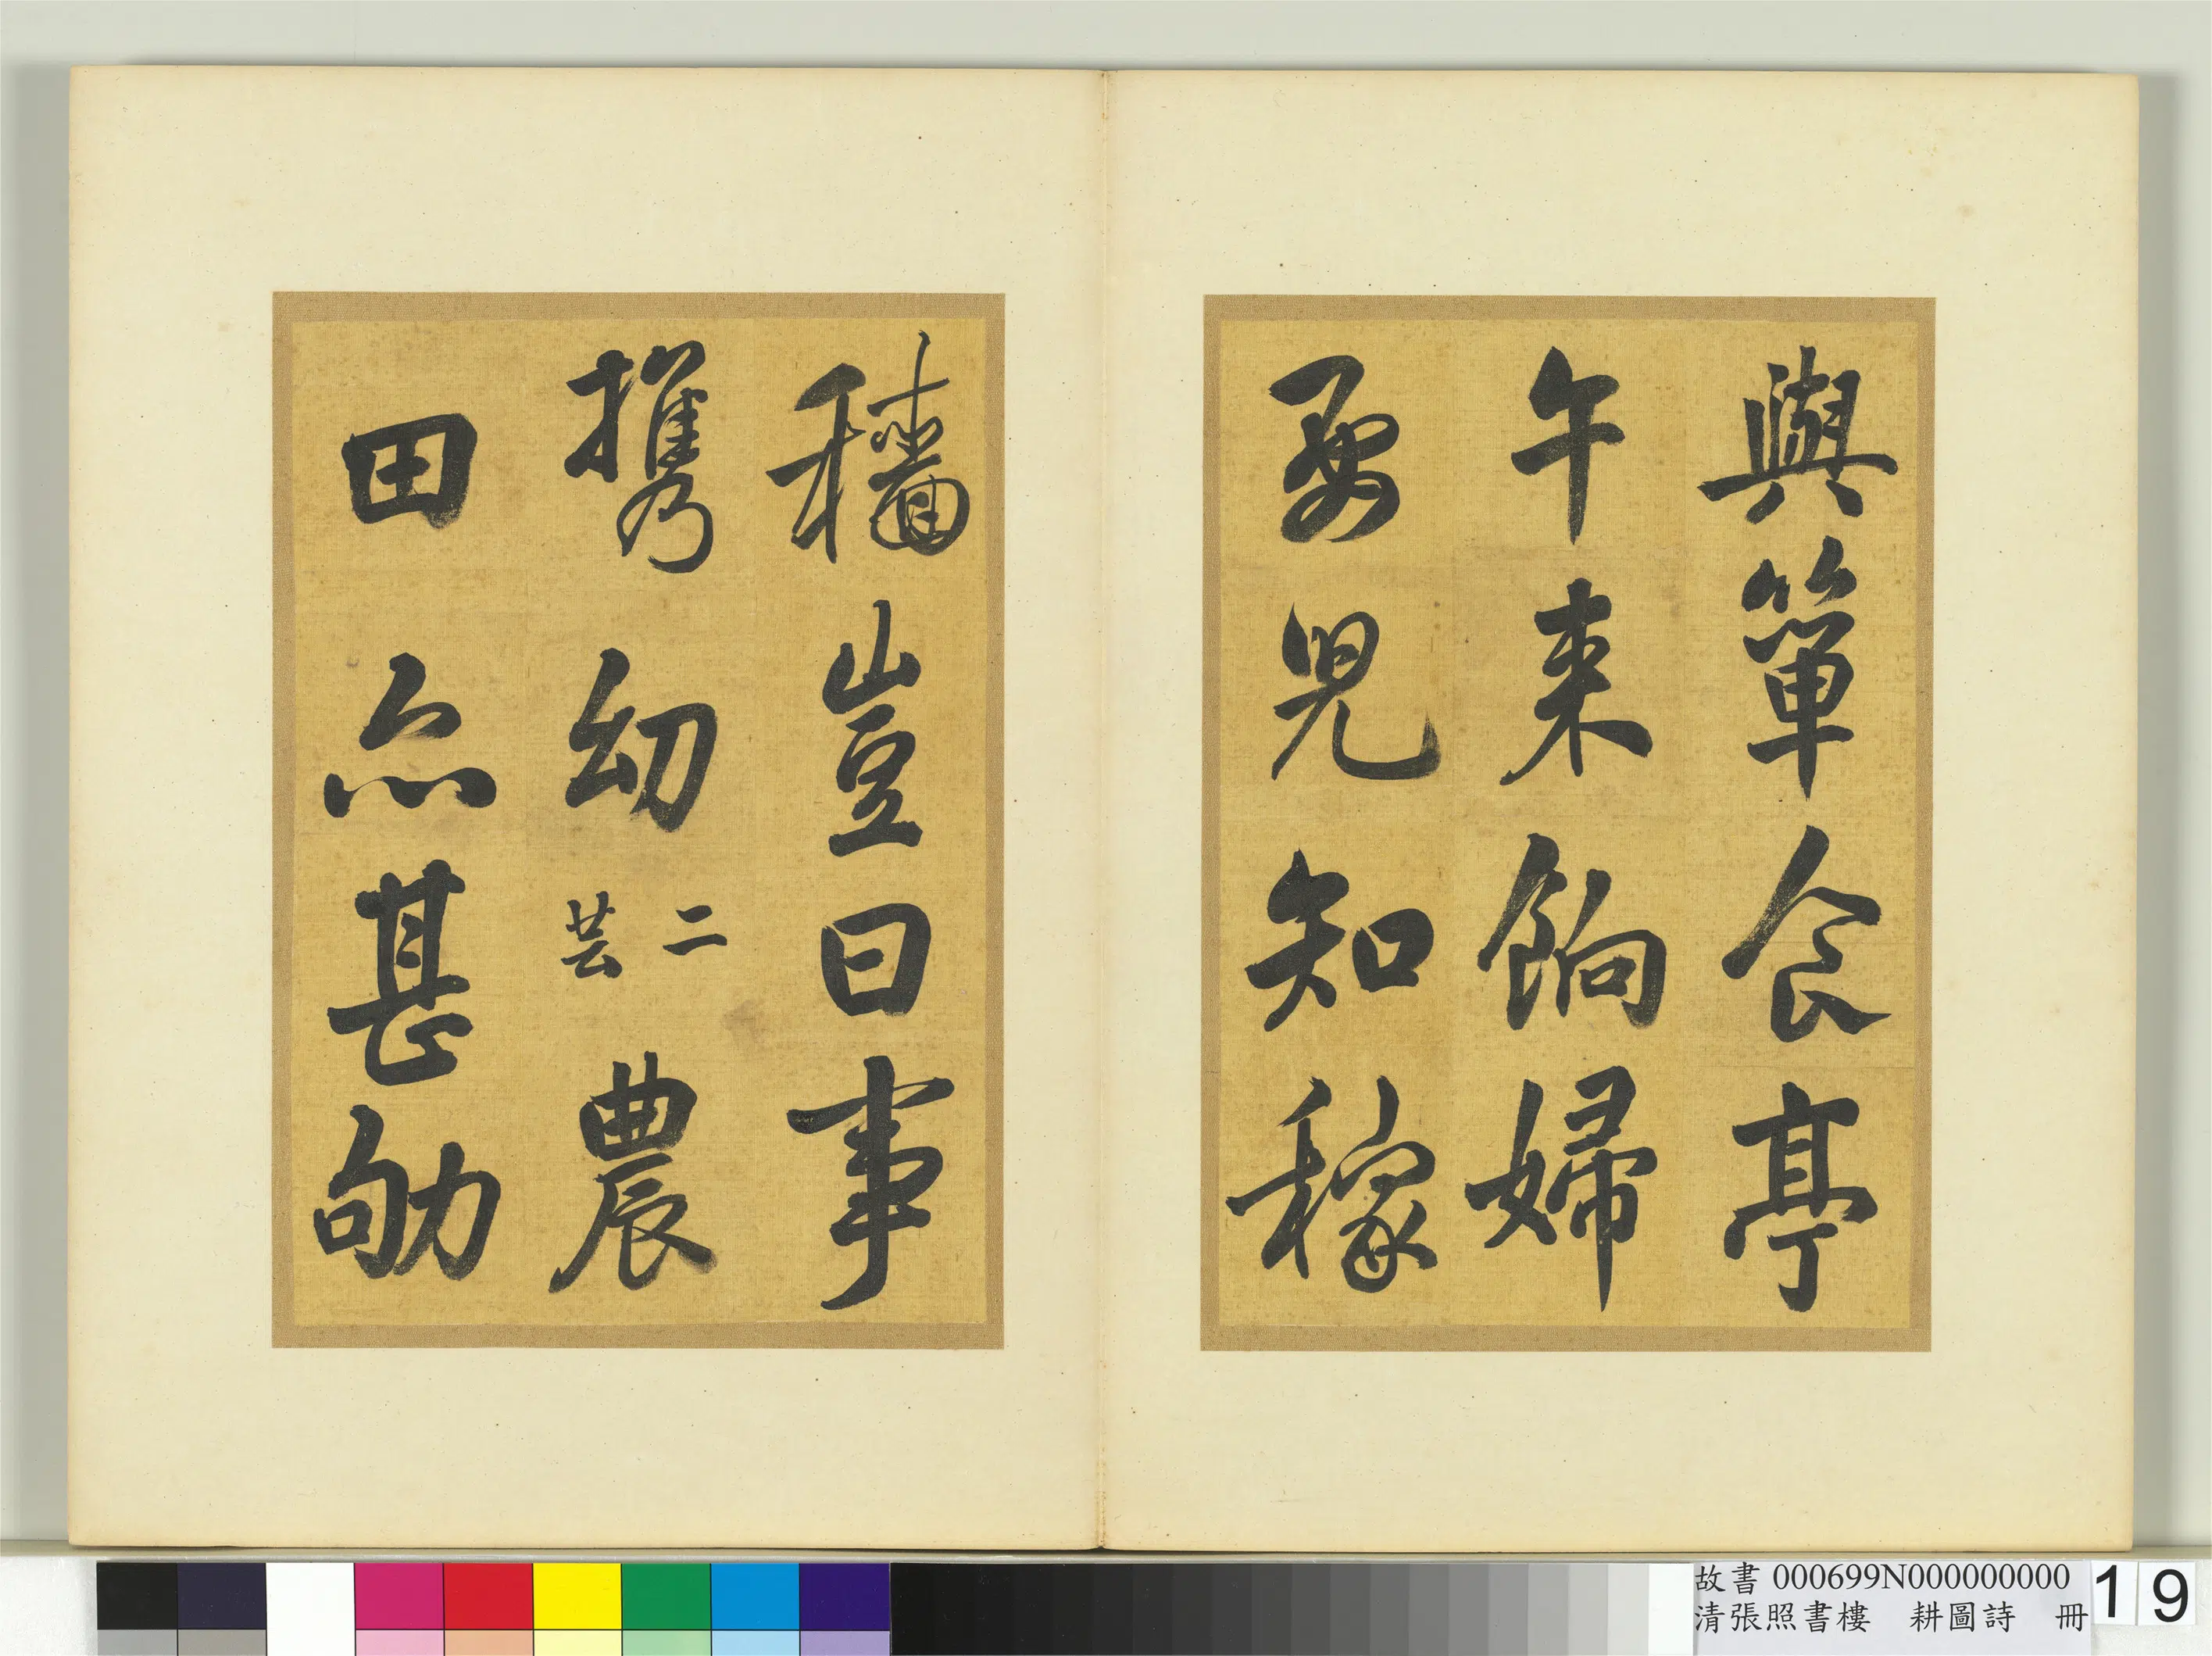 與簞食亭
午来餉婦
要児知稼
穡豈曰事
携幼二芸農
田亦甚劬
故書 000699N000000000
清張照書樓 耕圖詩 冊
19